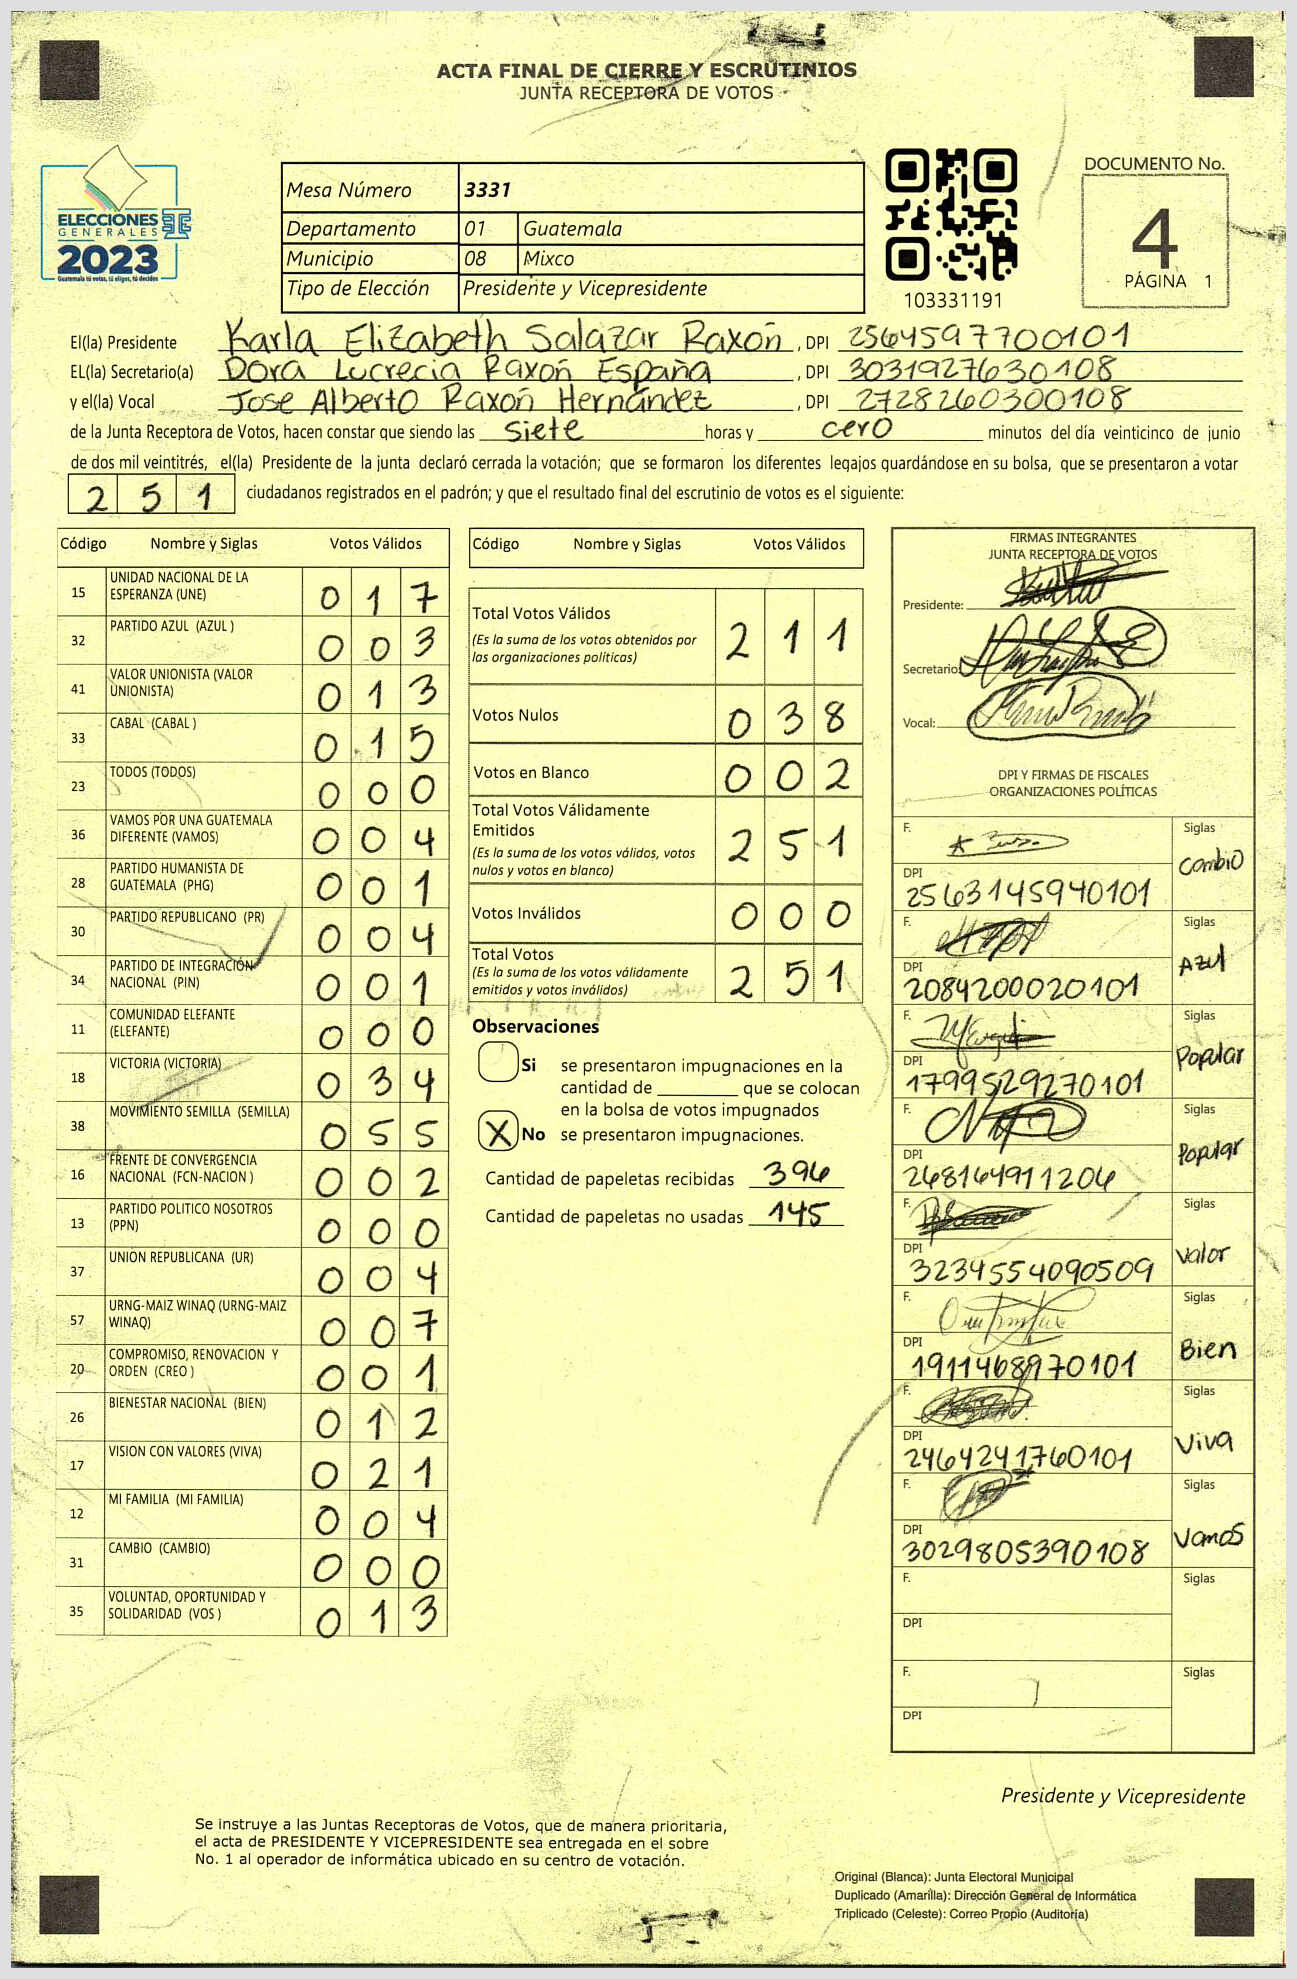 ACTA FINAL DE CIERRE Y ESCRUTINIOS
JUNTA RECEPTORA DE VOTOS
ELECCIONES
GENERALES
2023
Guatemala tú votas, tú eliges, tú decides
Mesa Número 3331
Departamento 01 Guatemala
Municipio 08 Mixco
Tipo de Elección Presidente y Vicepresidente
103331191
DOCUMENTO No.
4
PÁGINA 1
El(la) Presidente Karla Elizabeth Salazar Raxón, DPI 2564597700101
EL(la) Secretario(a) Dora Lucrecia Raxón España, DPI 3031927630108
y el(la) Vocal Jose Alberto Raxón Hernández, DPI 2728260300108
de la Junta Receptora de Votos, hacen constar que siendo las siete horas y cero minutos del día veinticinco de junio
de dos mil veintitrés, el(la) Presidente de la junta declaró cerrada la votación; que se formaron los diferentes legajos guardándose en su bolsa, que se presentaron a votar
2 5 1 ciudadanos registrados en el padrón; y que el resultado final del escrutinio de votos es el siguiente:
Código Nombre y Siglas Votos Válidos
15 UNIDAD NACIONAL DE LA ESPERANZA (UNE) 0 1 7
32 PARTIDO AZUL (AZUL ) 0 0 3
41 VALOR UNIONISTA (VALOR UNIONISTA) 0 1 3
33 CABAL (CABAL ) 0 15
23 TODOS (TODOS) 0 0 0
36 VAMOS POR UNA GUATEMALA DIFERENTE (VAMOS) 0 0 4
28 PARTIDO HUMANISTA DE GUATEMALA (PHG) 0 0 1
30 PARTIDO REPUBLICANO (PR) 0 0 4
34 PARTIDO DE INTEGRACIÓN NACIONAL (PIN) 0 0 1
11 COMUNIDAD ELEFANTE (ELEFANTE) 0 0 0
18 VICTORIA (VICTORIA) 0 3 4
38 MOVIMIENTO SEMILLA (SEMILLA) 0 5 5
16 FRENTE DE CONVERGENCIA NACIONAL (FCN-NACION ) 0 0 2
13 PARTIDO POLITICO NOSOTROS (PPN) 0 0 0
37 UNION REPUBLICANA (UR) 0 0 4
57 URNG-MAIZ WINAQ (URNG-MAIZ WINAQ) 0 0 7
20 COMPROMISO, RENOVACION Y ORDEN (CREO ) 0 0 1
26 BIENESTAR NACIONAL (BIEN) 0 1 2
17 VISION CON VALORES (VIVA) 0 2 1
12 MI FAMILIA (MI FAMILIA) 0 0 4
31 CAMBIO (CAMBIO) 0 0 0
35 VOLUNTAD, OPORTUNIDAD Y SOLIDARIDAD (VOS ) 0 1 3
Código Nombre y Siglas Votos Válidos
Total Votos Válidos 2 1 1
(Es la suma de los votos obtenidos por
las organizaciones políticas)
Votos Nulos 0 3 8
Votos en Blanco 0 0 2
Total Votos Válidamente
Emitidos 2 5 1
(Es la suma de los votos válidos, votos
nulos y votos en blanco)
Votos Inválidos 0 0 0
Total Votos 2 5 1
(Es la suma de los votos válidamente
emitidos y votos inválidos)
Observaciones
Si se presentaron impugnaciones en la
cantidad de ________ que se colocan
en la bolsa de votos impugnados
X No se presentaron impugnaciones.
Cantidad de papeletas recibidas 396
Cantidad de papeletas no usadas 145
FIRMAS INTEGRANTES
JUNTA RECEPTORA DE VOTOS
Presidente:
Secretario:
Vocal:
DPI Y FIRMAS DE FISCALES
ORGANIZACIONES POLÍTICAS
F. Siglas
DPI 2563145940101 Cambio
F. Siglas
DPI 2084200020101 Azul
F. Siglas
DPI 1799529270101 Popular
F. Siglas
DPI 268164911204 Popular
F. Siglas
DPI 3234554090509 Valor
F. Siglas
DPI 1911468970101 Bien
F. Siglas
DPI 2464241760101 Viva
F. Siglas
DPI 3029805390108 Vamos
F. Siglas
DPI
F. Siglas
DPI
Presidente y Vicepresidente
Se instruye a las Juntas Receptoras de Votos, que de manera prioritaria,
el acta de PRESIDENTE Y VICEPRESIDENTE sea entregada en el sobre
No. 1 al operador de informática ubicado en su centro de votación.
Original (Blanca): Junta Electoral Municipal
Duplicado (Amarilla): Dirección General de Informática
Triplicado (Celeste): Correo Propio (Auditoría)